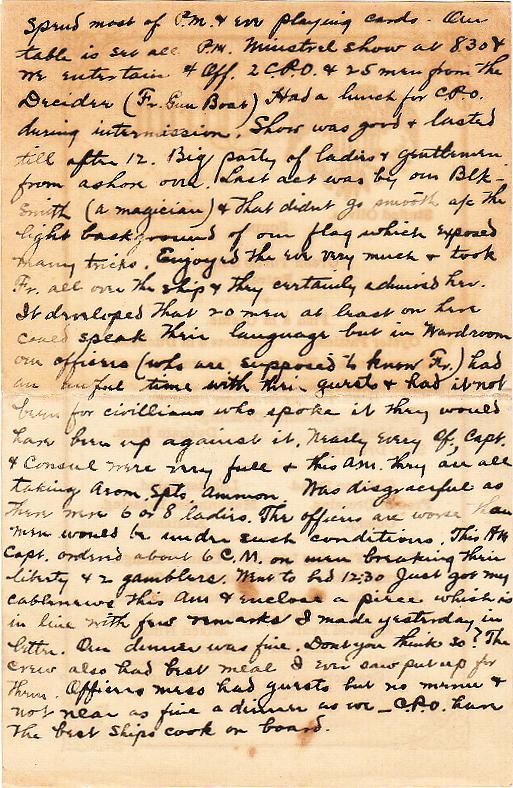 Spend most of P.M. & eve playing cards. Our
table is set all P.M. Minstrel show at 830 &
we entertain 4 Off. 2 C.P.O. & 25 men from the
Decidee (Fr. Gun Boat) Had a lunch for C.P.O.
during intermission. Show was good & lasted
till after 12. Big party of ladies & gentlemen
from ashore over. Last act was by our Blk-
smith (a magician) & that didn't go smooth a/c the
light background of our flag which exposed
many tricks. Enjoyed the eve very much & took
Fr. all over the ship & they certainly admired her.
It developed that 20 men at least on here
could speak their language but in Wardroom
our officers (who are supposed to know Fr.) had
an awful time with their guests & had it not
been for civillians who spoke it they would
have been up against it. Nearly every Of, Capt.
& Consul were very full & this Am. they are all
taking Arom. Spts. Ammon. Was disgraceful as
there were 6 or 8 ladies. The officers are worse than
men would be under such conditions. This AM
Capt. ordered about 6 C.M. on men breaking their
liberty & 2 gamblers. Went to bed 12:30 Just got my
cablenews this Am & enclose a piece which is
in line with few remarks I made yesterday in
letter. Our dinner was fine. Dont you think so? The
crew also had best meal I ever saw put up for
them. Officers mess had guests but no menu &
not near as fine a dinner as we _ C.P.O. have
the best ships cook on board.